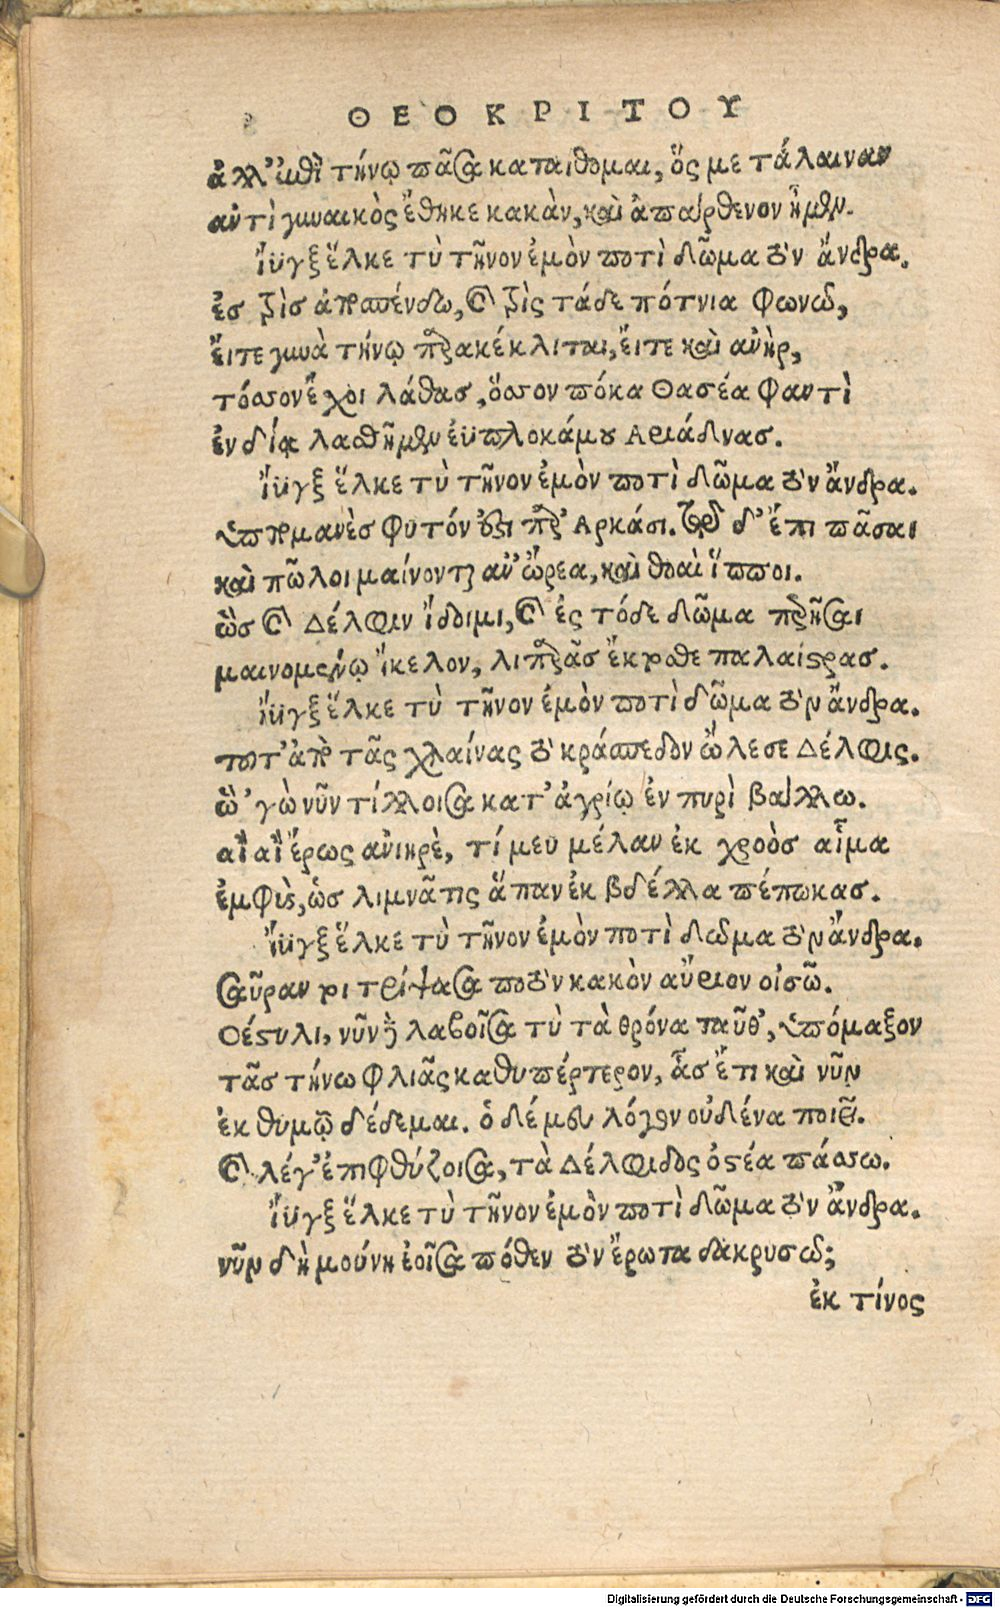 ΘΕΟΚΡΙΤΟΥ
ἀλλ' ἐπὶ τήνῳ πᾶσα καταιθομαι, ὅς με τάλαιναν
ἀντὶ γυναικὸς ἔθηκε κακὰν, καὶ ἀπάρθενον ἦμεν.
ἴϋγξ ἕλκε τὺ τῆνον ἐμὸν ποτὶ δῶμα τὸν ἄνδρα.
ἐσ τρὶσ ἀποσπένδω, καὶ τρὶς τάδε πότνια φωνῶ,
ἔιτε γυνὰ τήνῳ παρακέκλιται, ἔιτε καὶ ἀνὴρ,
τόσσον ἔχοι λάθασ, ὅσσον πόκα Θασέα φαντὶ
ἐν δίᾳ λασθῆμεν ἐϋπλοκάμου Αριάδνασ.
ἴϋγξ ἕλκε τὺ τῆνον ἐμὸν ποτὶ δῶμα τὸν ἄνδρα.
ἱππομανὲσ φυτόν ἐστι παρ' Αρκάσι. τῷ δ' ἔπι πᾶσαι
καὶ πῶλοι μαίνονται ἀν' ὤρεα, καὶ θοαὶ ἵπποι.
ὣσ καὶ Δέλφιν ἴδοιμι, καὶ ἐς τόδε δῶμα περῆσαι
μαινομένῳ ἴκελον, λιπαρᾶσ ἔκτοθε παλαίστρασ.
ἴϋγξ ἕλκε τὺ τῆνον ἐμὸν ποτὶ δῶμα τὸν ἄνδρα.
τοτ' ἀπὸ τᾶς χλαίνας τὸ κράσπεδον ὤλεσε Δέλφις.
ὣ' γὼ νῦν τίλλοισα κατ' ἀγρίῳ ἐν πυρὶ βάλλω.
αἲ αἲ ἔρως ἀνιηρὲ, τί μευ μέλαν ἐκ χροὸσ αἷμα
ἐμφὺς, ὡσ λιμνᾶτις ἅπαν ἐκ βδέλλα πέπωκασ.
ἴϋγξ ἕλκε τὺ τῆνον ἐμὸν ποτὶ δωμα τὸν ἄνδρα.
σαῦραν τοι τρίψασα ποτὸν κακὸν αὔριον οἰσῶ.
Θέστυλι, νῦν δὲ λαβοῖσα τὺ τὰ θρόνα ταῦθ', ὑπόμαξον
τᾶσ τήνω φλιᾶς καθυπέρτερον, ἇσ ἔτι καὶ νῦν
ἐκ θυμῶ δέδεμαι. ὁ δέ μευ λόγον οὐδένα ποιεῖ.
καὶ λέγ' ἐπιφθύζοισα, τὰ Δέλφιδος ὀστέα πάσσω.
ἴϋγξ ἕλκε τὺ τῆνον ἐμὸν ποτὶ δῶμα τὸν ἄνδρα.
νῦν δὴ μούνη ἐοῖσα πόθεν τὸν ἔρωτα δακρυσῶ;
ἐκ τίνος
Digitalisierung gefördert durch die Deutsche Forschungsgemeinschaft - DFG